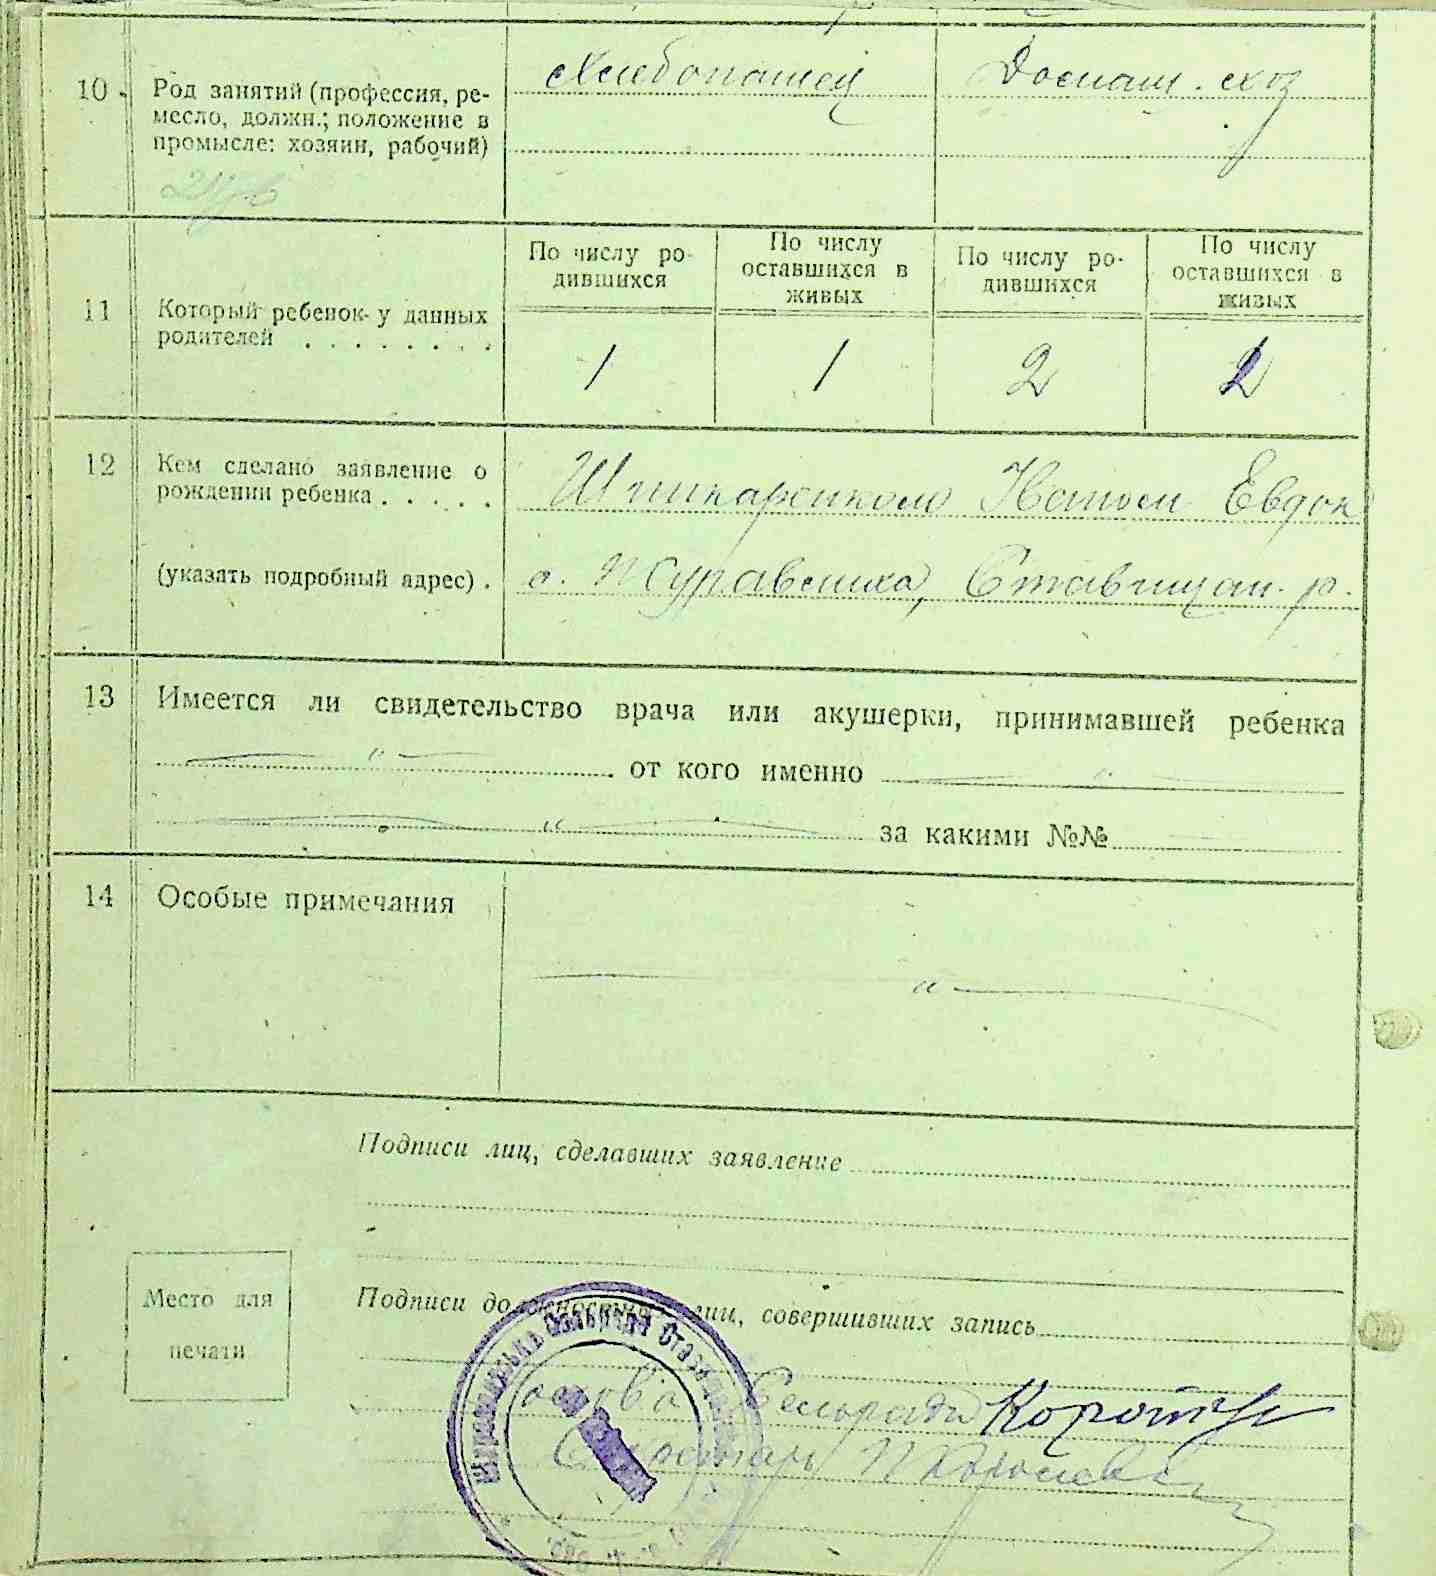 10 Род занятий (профессия, ре-
месло, должн.; положение в
промысле: хозяин, рабочий)
Хлебопашец
Домаш. хоз
11 Который ребенок у данных
родителей . . . . . . . .
По числу ро-
дившихся
По числу
оставшихся в
живых
По числу ро-
дившихся
По числу
оставшихся в
живых
1 1 2 2
12 Кем сделано заявление о
рождении ребенка . . . . .
Евдок
(указать подробный адрес) .
с. Журавлиха, Ставищан. р.
13 Имеется ли свидетельство врача или акушерки, принимавшей ребенка
— " — от кого именно — " —
— " — за какими №№
14 Особые примечания
— " —
Подписи лиц, сделавших заявление
Место для
печати
Подписи лиц, совершивших запись
Сельради
Секретар